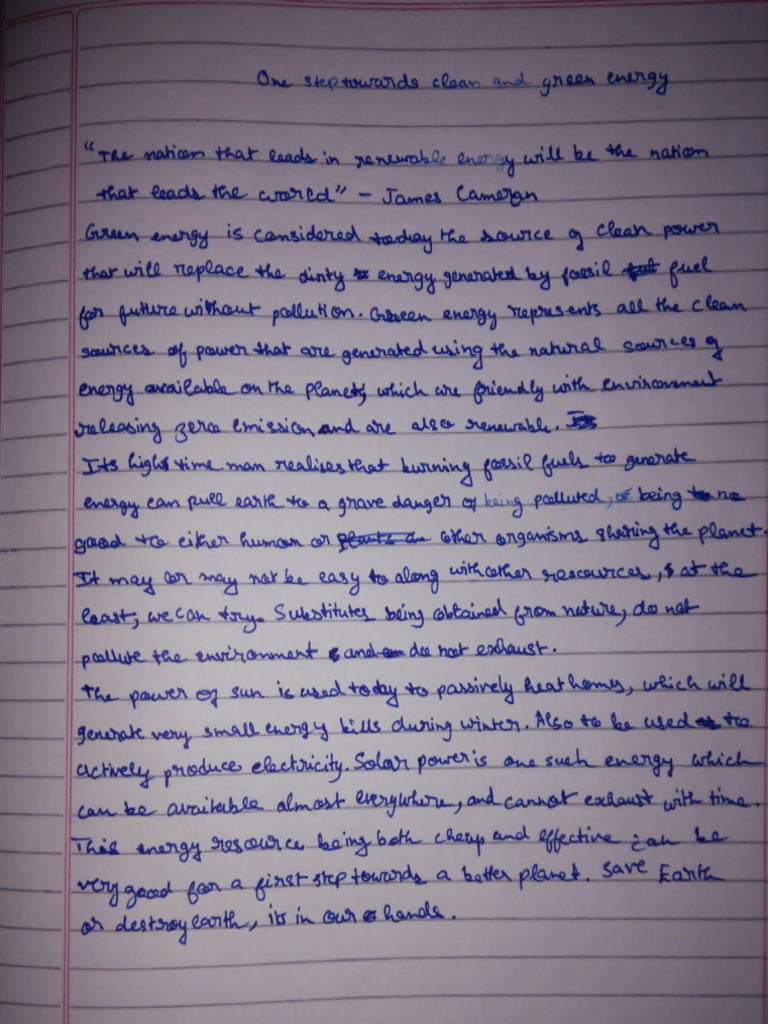 One step towards clean and green energy
"The nation that leads in renewable energy will be the nation
that leads the world" - James Cameron
Green energy is considered today the source of clean power
that will replace the dirty energy generated by fossil fuel
for future without pollution. Green energy represents all the clean
sources of power that are generated using the natural sources of
energy available on the planet, which are friendly with environment
releasing zero emission and are also renewable.
Its high time man realises that burning fossil fuels to generate
energy can pull earth to a grave danger of being polluted, of being no
good to either human or other organisms sharing the planet.
It may or may not be easy to along with other resources, at the
least, we can try. Substitutes being obtained from nature, do not
pollute the environment and do not exhaust.
The power of sun is used today to passively heat homes, which will
generate very small energy bills during winter. Also to be used to
actively produce electricity. Solar power is one such energy which
can be available almost everywhere, and cannot exhaust with time.
This energy resource being both cheap and effective can be
very good for a first step towards a better planet. Save Earth
or destroy earth, its in our hands.